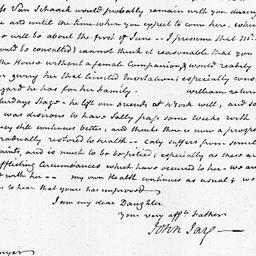 Van Schaack would probably remain with you during
and until the time when you expect to come here, which
will be about the first of June — I presume that Mr.
would be consulted. I cannot think it reasonable that you
the House without a female companion, & would readily
giving her that limited Invitation; especially cons
regard he has for her family. William return
turdays Stage — he left our friends at N York well, and so
was desirous to have Sally pass some weeks with
continues better, and thinks there is now a prospect
gradually restored to health — suffers from
aints, and is much to be pitied; especially as there are
afflicting Circumstances which have occurred to her — we are
with her — my own Health continues as usual & we
to hear that yours has improved —
I am my dear Daughter
Your very affte. Father
John Jay —